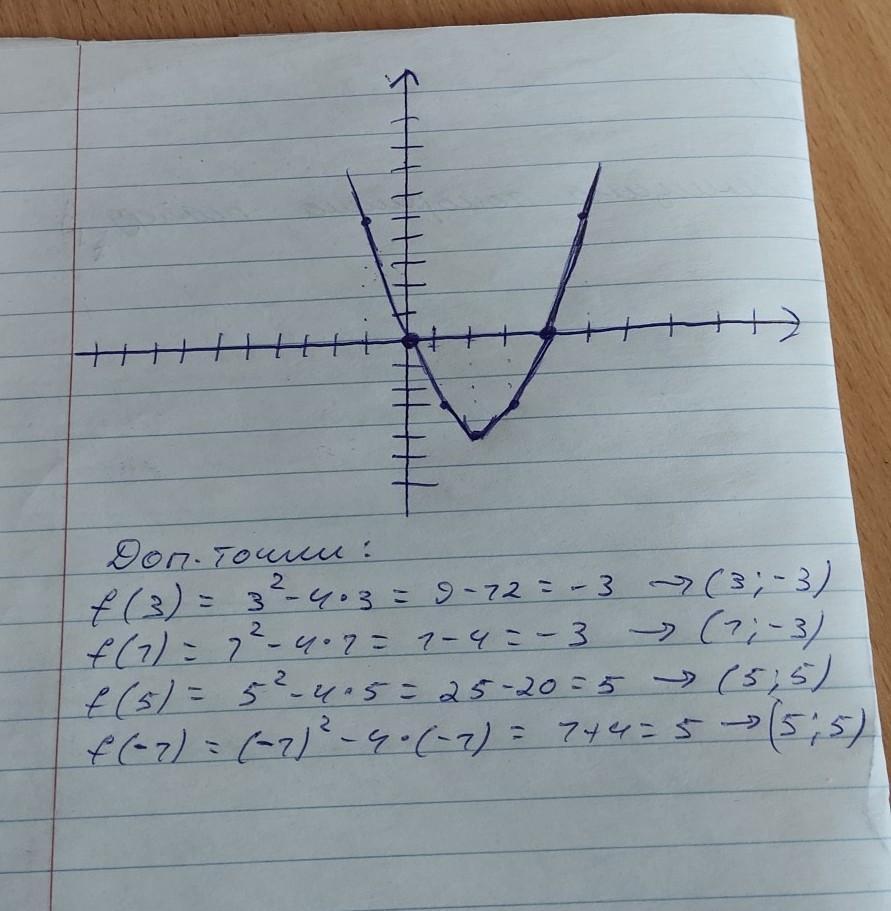 Доп. точки:
f(3) = 3² - 4·3 = 9 - 12 = -3 → (3; -3)
f(1) = 1² - 4·1 = 1 - 4 = -3 → (1; -3)
f(5) = 5² - 4·5 = 25 - 20 = 5 → (5; 5)
f(-1) = (-1)² - 4·(-1) = 1 + 4 = 5 → (5; 5)